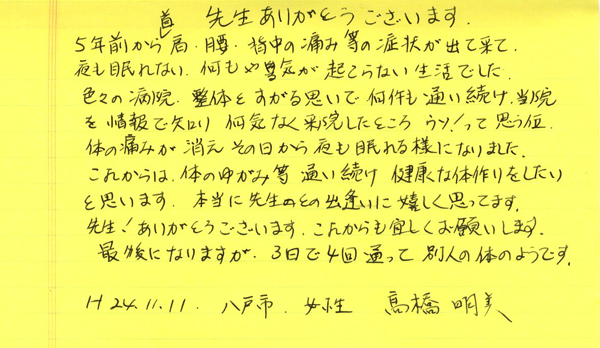 直 先生ありがとうございます。
5年前から肩・腰・背中の痛み等の症状が出て来て、
夜も眠れない、何もやる気が起こらない生活でした。
色々の病院、整体とすがる思いで何件も通い続け、当院
を情報で知り何気なく来院したところ ウソ！って思う位、
体の痛みが消え その日から夜も眠れる様になりました。
これからは、体のゆがみ等 通い続け 健康な体作りをしたい
と思います。本当に先生との出逢いに嬉しく思ってます。
先生！ありがとうございます。これからも宜しくお願いします。
最後になりますが、3日で4回通って 別人の体のようです。
H24.11.11. 八戸市. 女性 髙橋 明美